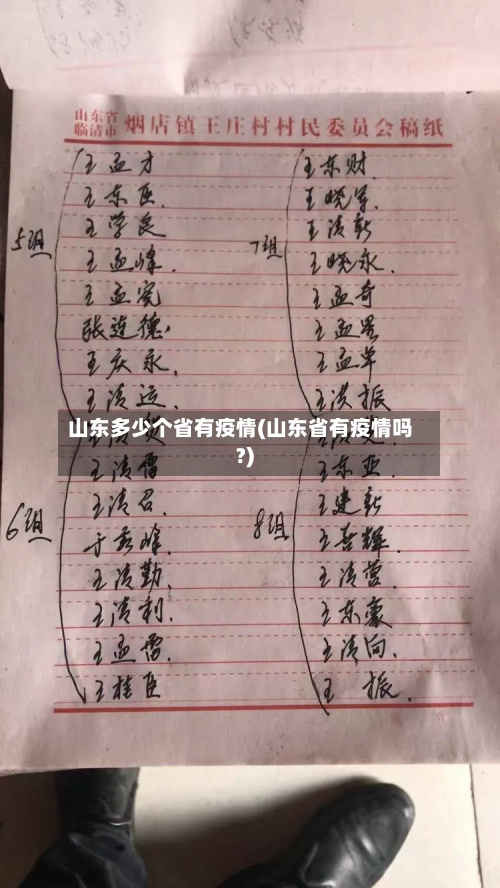 山东省
临清市
烟店镇王庄村村民委员会稿纸
5组
王孟才
王东臣
王学良
王孟峰
王孟宪
张道德
王庆永
王清运
6组
王清雷
王清召
于秀峰
王清勤
王清利
王孟雷
王桂臣
7组
王东财
王晓军
王清新
王晓永
王孟奇
王孟军
王洪振
8组
王东亚
王建新
王善辉
王清营
王东豪
王清向
王振
山东多少个省有疫情(山东省有疫情吗
?)